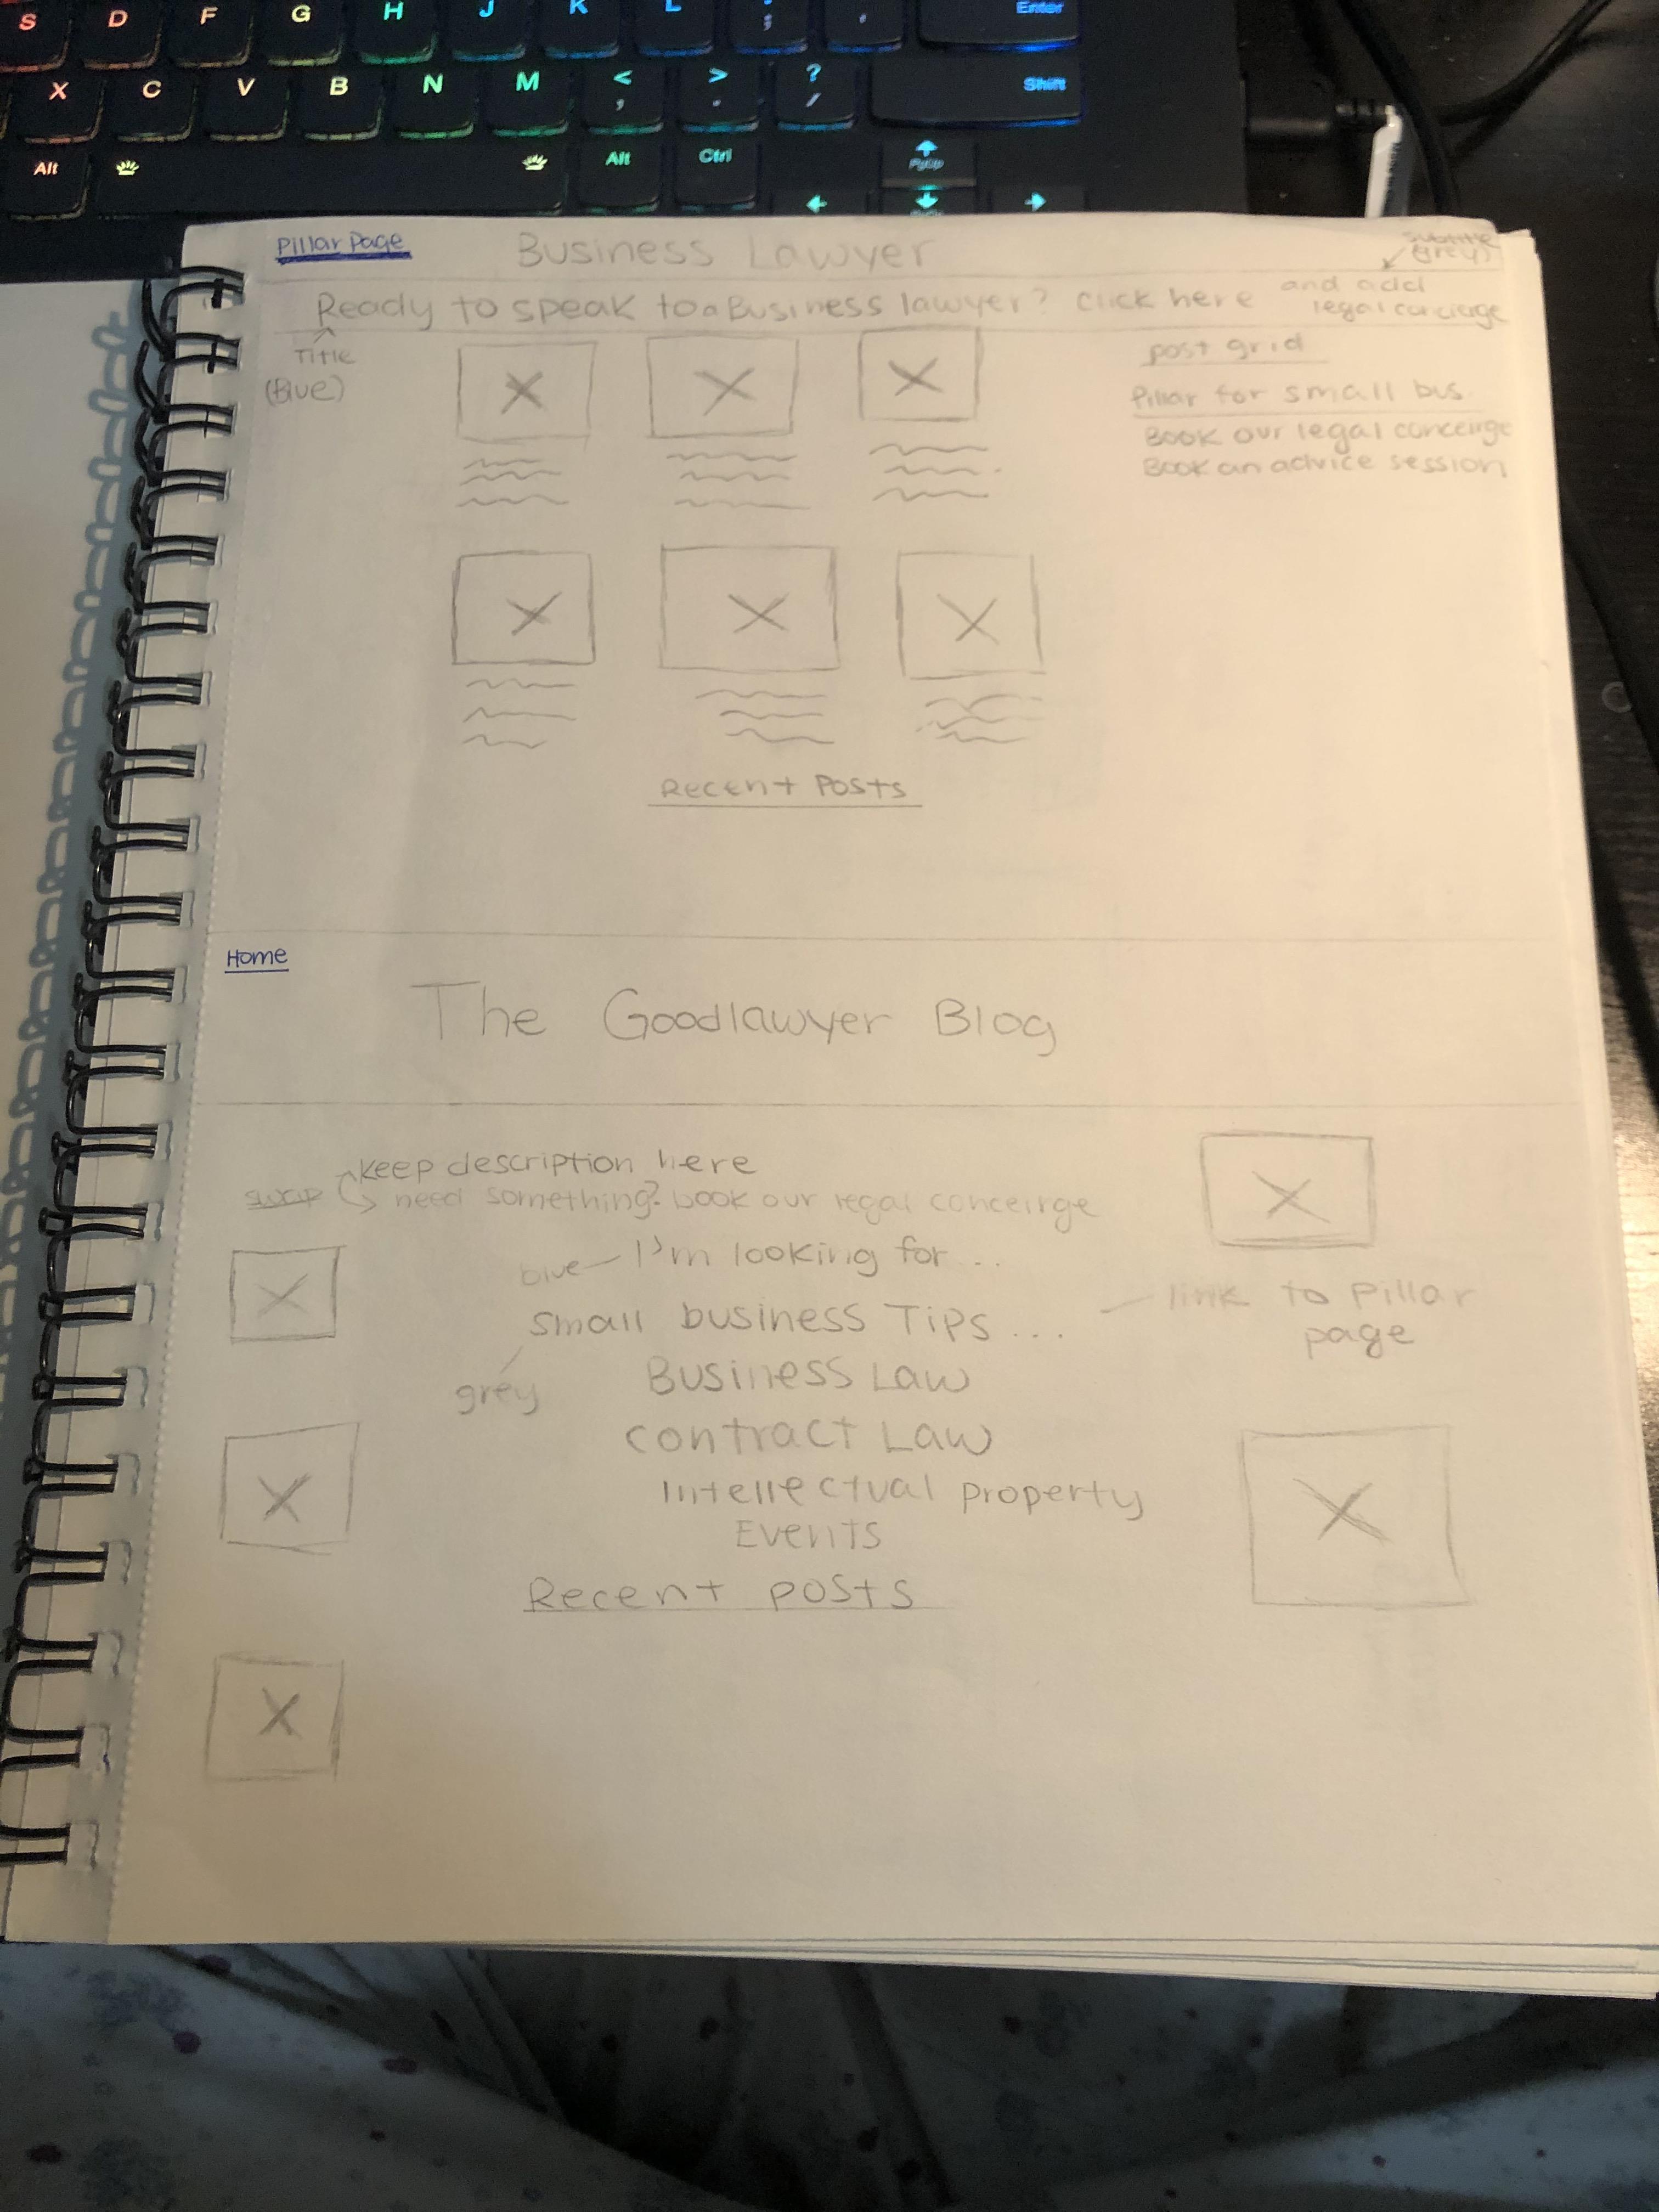 S D F G H J K L ; , Enter
X C V B N M < , > . ? / Shift
Alt Alt Ctrl PgUp
Pillar Page
Business Lawyer
subtitle
(grey)
Ready to speak to a Business lawyer? click here
and add
legal concierge
Title
(Blue)
post grid
Pillar for small bus.
Book our legal conceirge
Book an advice session
Recent Posts
Home
The Goodlawyer Blog
keep description here
swap
need something? book our legal conceirge
blue
I'm looking for...
small business Tips...
link to Pillar
page
grey
Business Law
contract Law
Intellectual property
Events
Recent posts